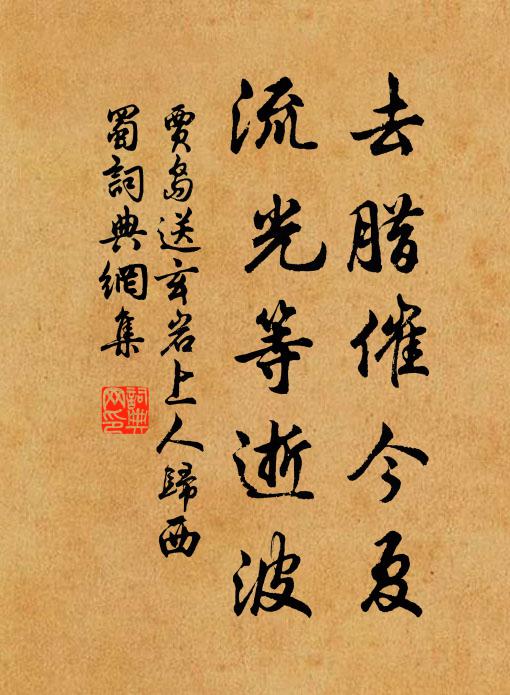 去腊催今夏
流光等逝波
賈島送玄岩上人歸西
蜀詞典網集
詞典网印